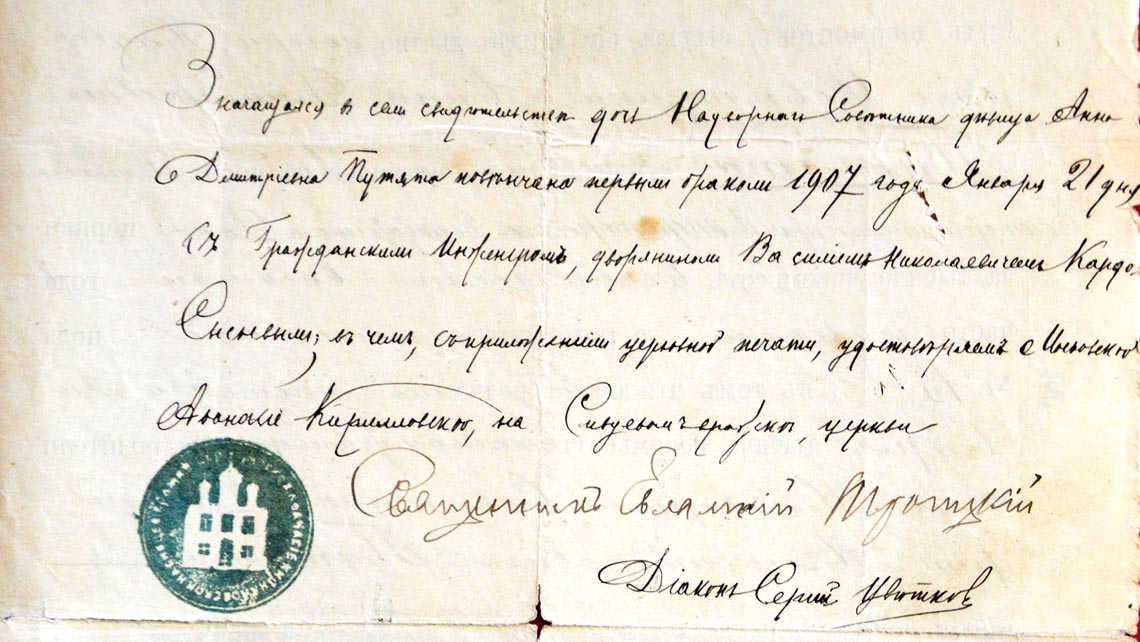 Значащаяся в сем свидѣтельстве дочь Надворнаго Совѣтника дѣвица Анна
Дмитріевна Путята повѣнчана первым браком 1907 года Января 21 дня
съ Гражданским Инженеромъ, дворянином Василіемъ Николаевичемъ Кардо-
Сысоевым; въ чемъ, съ приложеніем церковной печати, удостовѣряемъ Московской
Афанасіе Кирилловской, на Сивцевом вражке, церкви
Священникъ Евлампій Троицкій
Діаконъ Сергій Цвѣтков